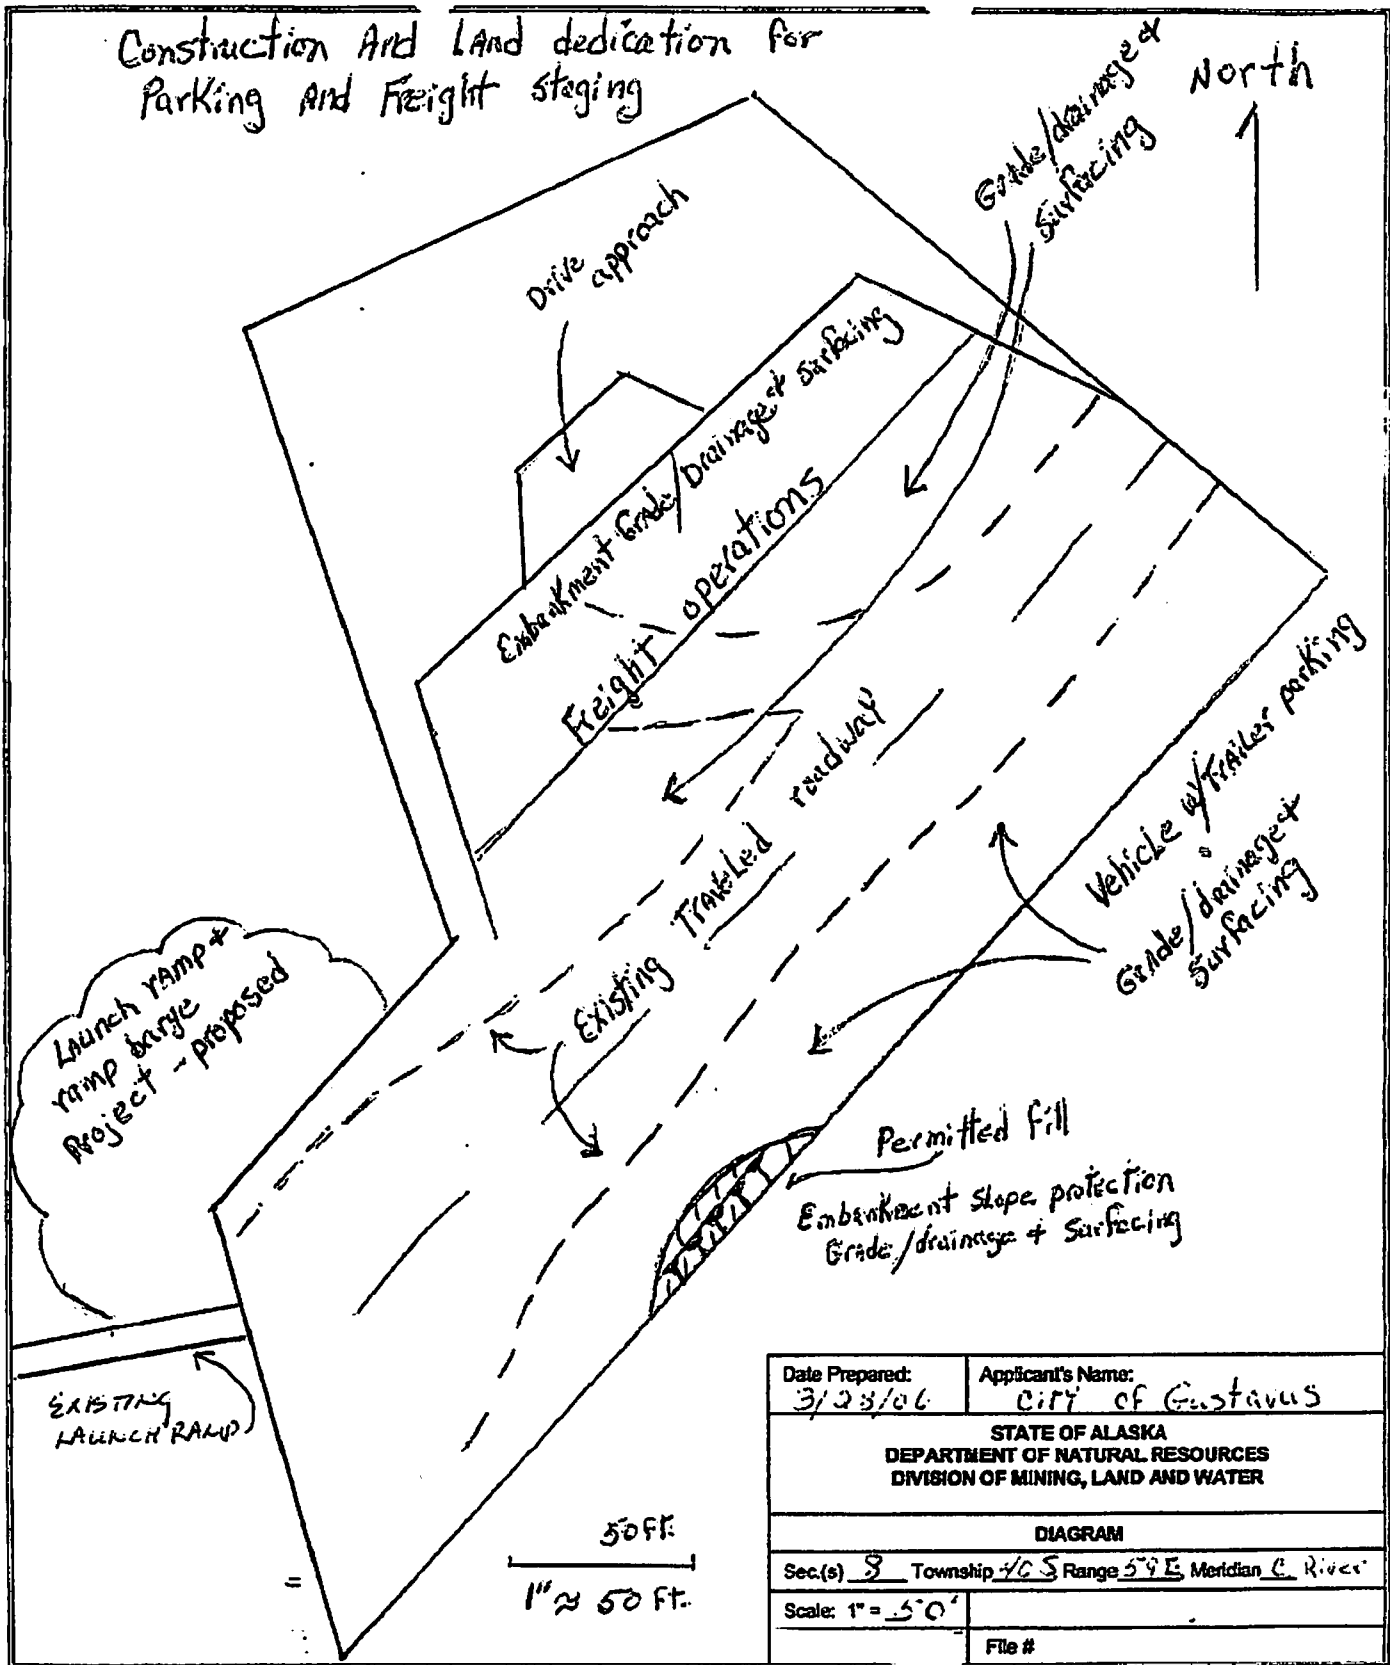 Construction And LAnd dedication for
Parking And Freight staging
North
Grade/drainage &
Surfacing
Drive
approach
Embankment Grade/Drainage & Surfacing
Freight operations
Existing Traveled roadway
Vehicle w/Trailer parking
Grade/drainage &
Surfacing
LAunch rAmp &
ramp barge
Project - proposed
Permitted fill
Embankment slope protection
Grade/drainage & Surfacing
EXISTING
LAUNCH RAMP
50 Ft.
1" ≈ 50 Ft.
Date Prepared:
Applicant's Name:
City of Gustavus
STATE OF ALASKA
DEPARTMENT OF NATURAL RESOURCES
DIVISION OF MINING, LAND AND WATER
DIAGRAM
Sec.(s) 8 Township 40 S Range 59 E Meridian C. River
Scale: 1" = 50'
File #